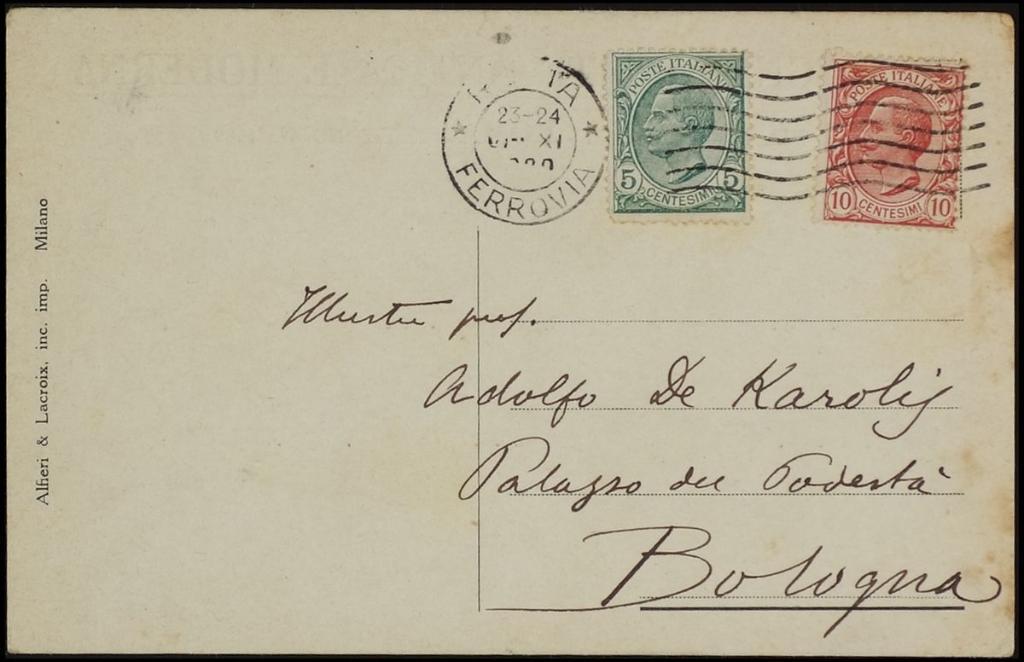 23-24
XI
FERROVIA
POSTE ITALIANE
5 CENTESIMI 5
POSTE ITALIANE
10 CENTESIMI 10
Alfieri & Lacroix, inc. imp. Milano
Illustre prof.
Adolfo De Karolis
Palazzo del Podestà
Bologna